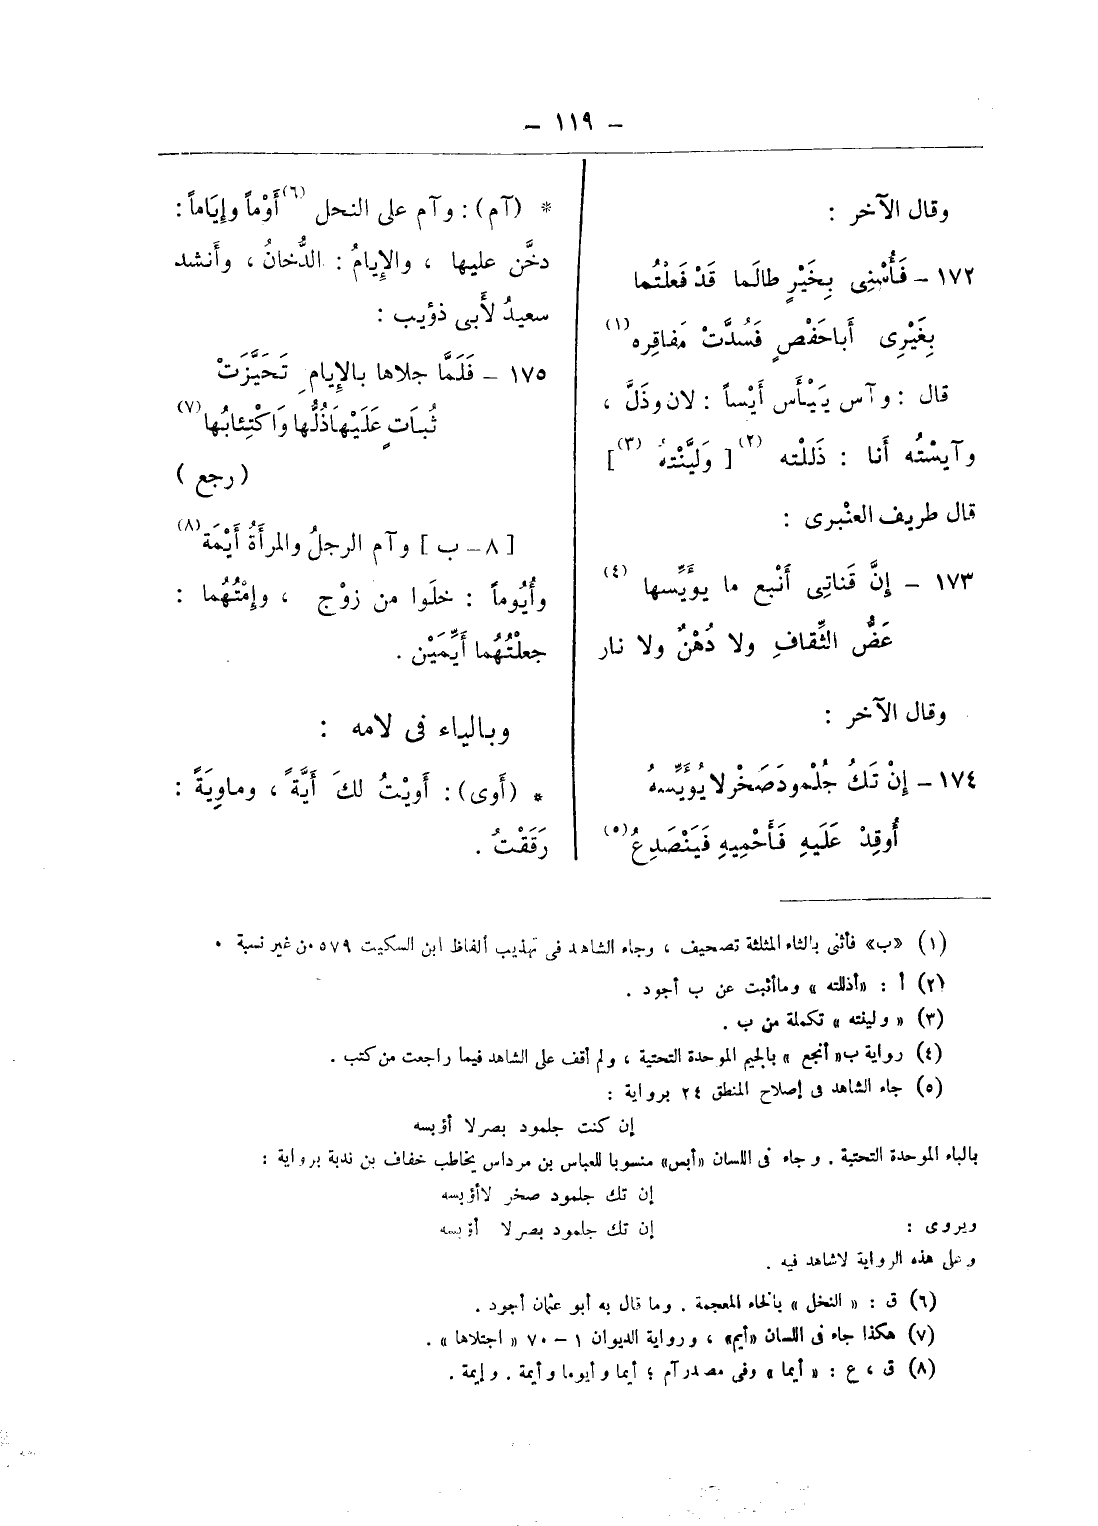 – ١١٩ –
وقال الآخر :
١٧٢ – فَأُسْنِى بِخَيْرٍ طالَما قَدْ فَعلْتُما
بِغَيْرِى أَباحَفْصٍ فَسُدَّتْ مَفاقِره (١)
قال : وآس يَيْأَس أَيْساً : لان وذَلَّ ،
وآيسْتُه أَنا : ذَللْته (٢) [ وَليَّنْتهُ (٣) ]
قال طريف العنْبرى :
١٧٣ – إِنَّ قَناتِى أَنْبع ما يؤَيِّسها (٤)
عَضُّ الثِّقافِ ولا دُهْنٌ ولا نار
وقال الآخر :
١٧٤ – إِنْ تَكُ جُلْمودَصَخْرلا يُؤَيِّسهُ
أُوقِدْ عَلَيهِ فَأَحْمِيهِ فَيَنْصَدِعُ (٥)
* (آم) : وآم على النحل (٦) أَوْماً وإِيَاماً :
دخَّن عليها ، والإِيامُ : الدُّخانُ ، وأَنشد
سعيدُ لأَبى ذؤيب :
١٧٥ – فَلَمَّا جلاها بالإِيامِ تَحَيَّزَتْ
ثُباَتٍ عَلَيْهاذُلُّها وَاكْتِئابُها (٧)
( رجع )
[ ٨ – ب ] وآم الرجلُ والمرأَةُ أَيْمَة (٨)
وأُيُوماً : خلَوا من زوْج ، وإِمْتُهُما :
جعلْتُهُما أَيِّمَيْن .
وبالياء فى لامه :
* (أَوى) : أَويْتُ لكَ أَيَّةً ، وماوِيَةً :
رَقَقْتُ .
(١) «ب» فأثنى بالثاء المثلثة تصحيف ، وجاء الشاهد فى تهذيب ألفاظ ابن السكيت ٥٧٩ من غير نسبة ٠
(٢) أ : «أذللته » وماأثبت عن ب أجود .
(٣) « ولينته » تكملة من ب .
(٤) رواية ب« أنجع » بالجيم الموحدة التحتية ، ولم أقف على الشاهد فيما راجعت من كتب .
(٥) جاء الشاهد فى إصلاح المنطق ٢٤ برواية :
إن كنت جلمود بصرلا أؤبسه
بالباء الموحدة التحتية . وجاء فى اللسان «أبس» منسوبا للعباس بن مرداس يخاطب خفاف بن ندبة برواية :
إن تك جلمود صخر لاأؤبسه
ويروى : إن تك جلمود بصرلا أؤبسه
وعلى هذه الرواية لاشاهد فيه .
(٦) ق : « النخل » بالخاء المعجمة . وما قال به أبو عثمان أجود .
(٧) هكذا جاء فى اللسان «أيم» ، ورواية الديوان ١ – ٧٠ « اجتلاها » .
(٨) ق ، ع : « أيما » وفى مصدر آم ؛ أيما وأيوما وأيمة . وإيمة .